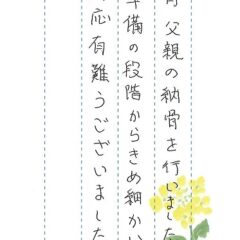 父親の納骨を行いました
備の段階からきめ細かい
応有難うございました